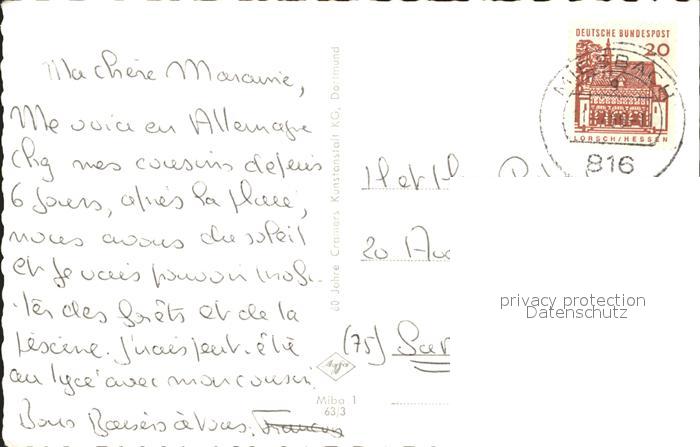 Ma chère Marraine,
Me voici en Allemagne
chez mes cousins depuis
6 jours, après la pluie,
nous avons du soleil
et je vais pouvoir profi-
ter des forêts et de la
piscine. J'irais peut-être
au lycée avec mon cousin.
Bons Baisers à vous.
60 Jahre Cramers Kunstanstalt KG, Dortmund
Miba 1
63/3
DEUTSCHE BUNDESPOST
20
LORSCH/HESSEN
MIESBACH
816
M et M
20
(75)
privacy protection
Datenschutz